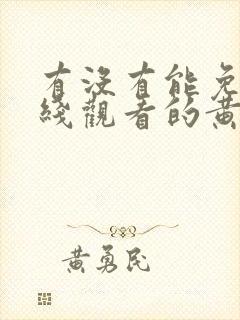 有没有能免
綫觀看的黄
黄勇民